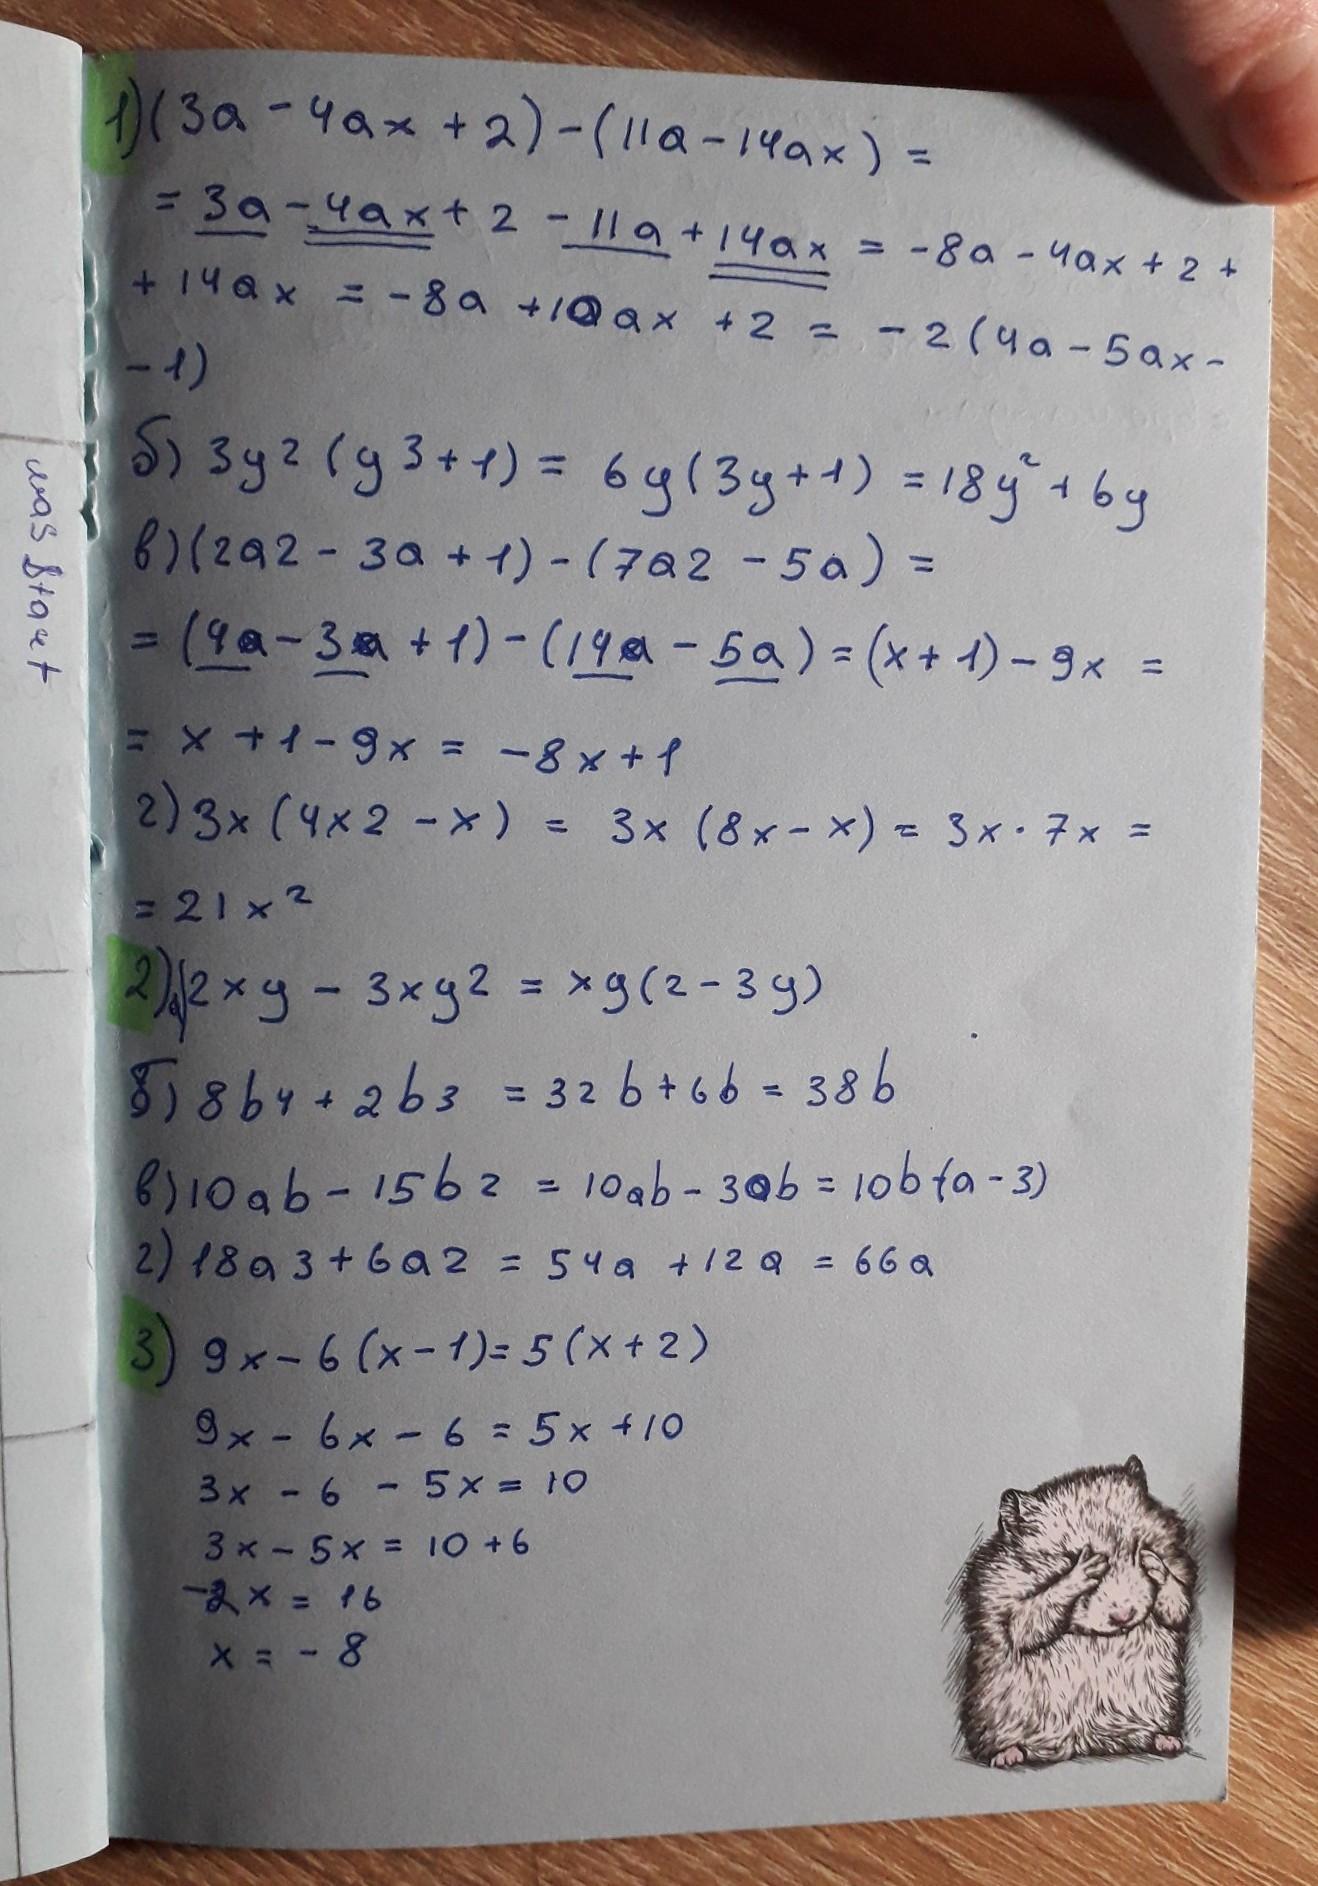 1) (3a - 4ax + 2) - (11a - 14ax) =
= 3a - 4ax + 2 - 11a + 14ax = -8a - 4ax + 2 +
+ 14ax = -8a + 10ax + 2 = -2(4a - 5ax -
- 1)
б) 3y2 (y3+1) = 6y(3y+1) = 18y² + 6y
в) (2a2 - 3a + 1) - (7a2 - 5a) =
= (4a - 3a + 1) - (14a - 5a) = (x + 1) - 9x =
= x + 1 - 9x = -8x + 1
г) 3x (4x2 - x) = 3x (8x - x) = 3x · 7x =
= 21x²
2) a) 2xy - 3xy2 = xy(2 - 3y)
б) 8b4 + 2b3 = 32b + 6b = 38b
в) 10ab - 15b2 = 10ab - 30b = 10b (a - 3)
г) 18a3 + 6a2 = 54a + 12a = 66a
3) 9x - 6(x - 1) = 5(x + 2)
9x - 6x - 6 = 5x + 10
3x - 6 - 5x = 10
3x - 5x = 10 + 6
-2x = 16
x = -8